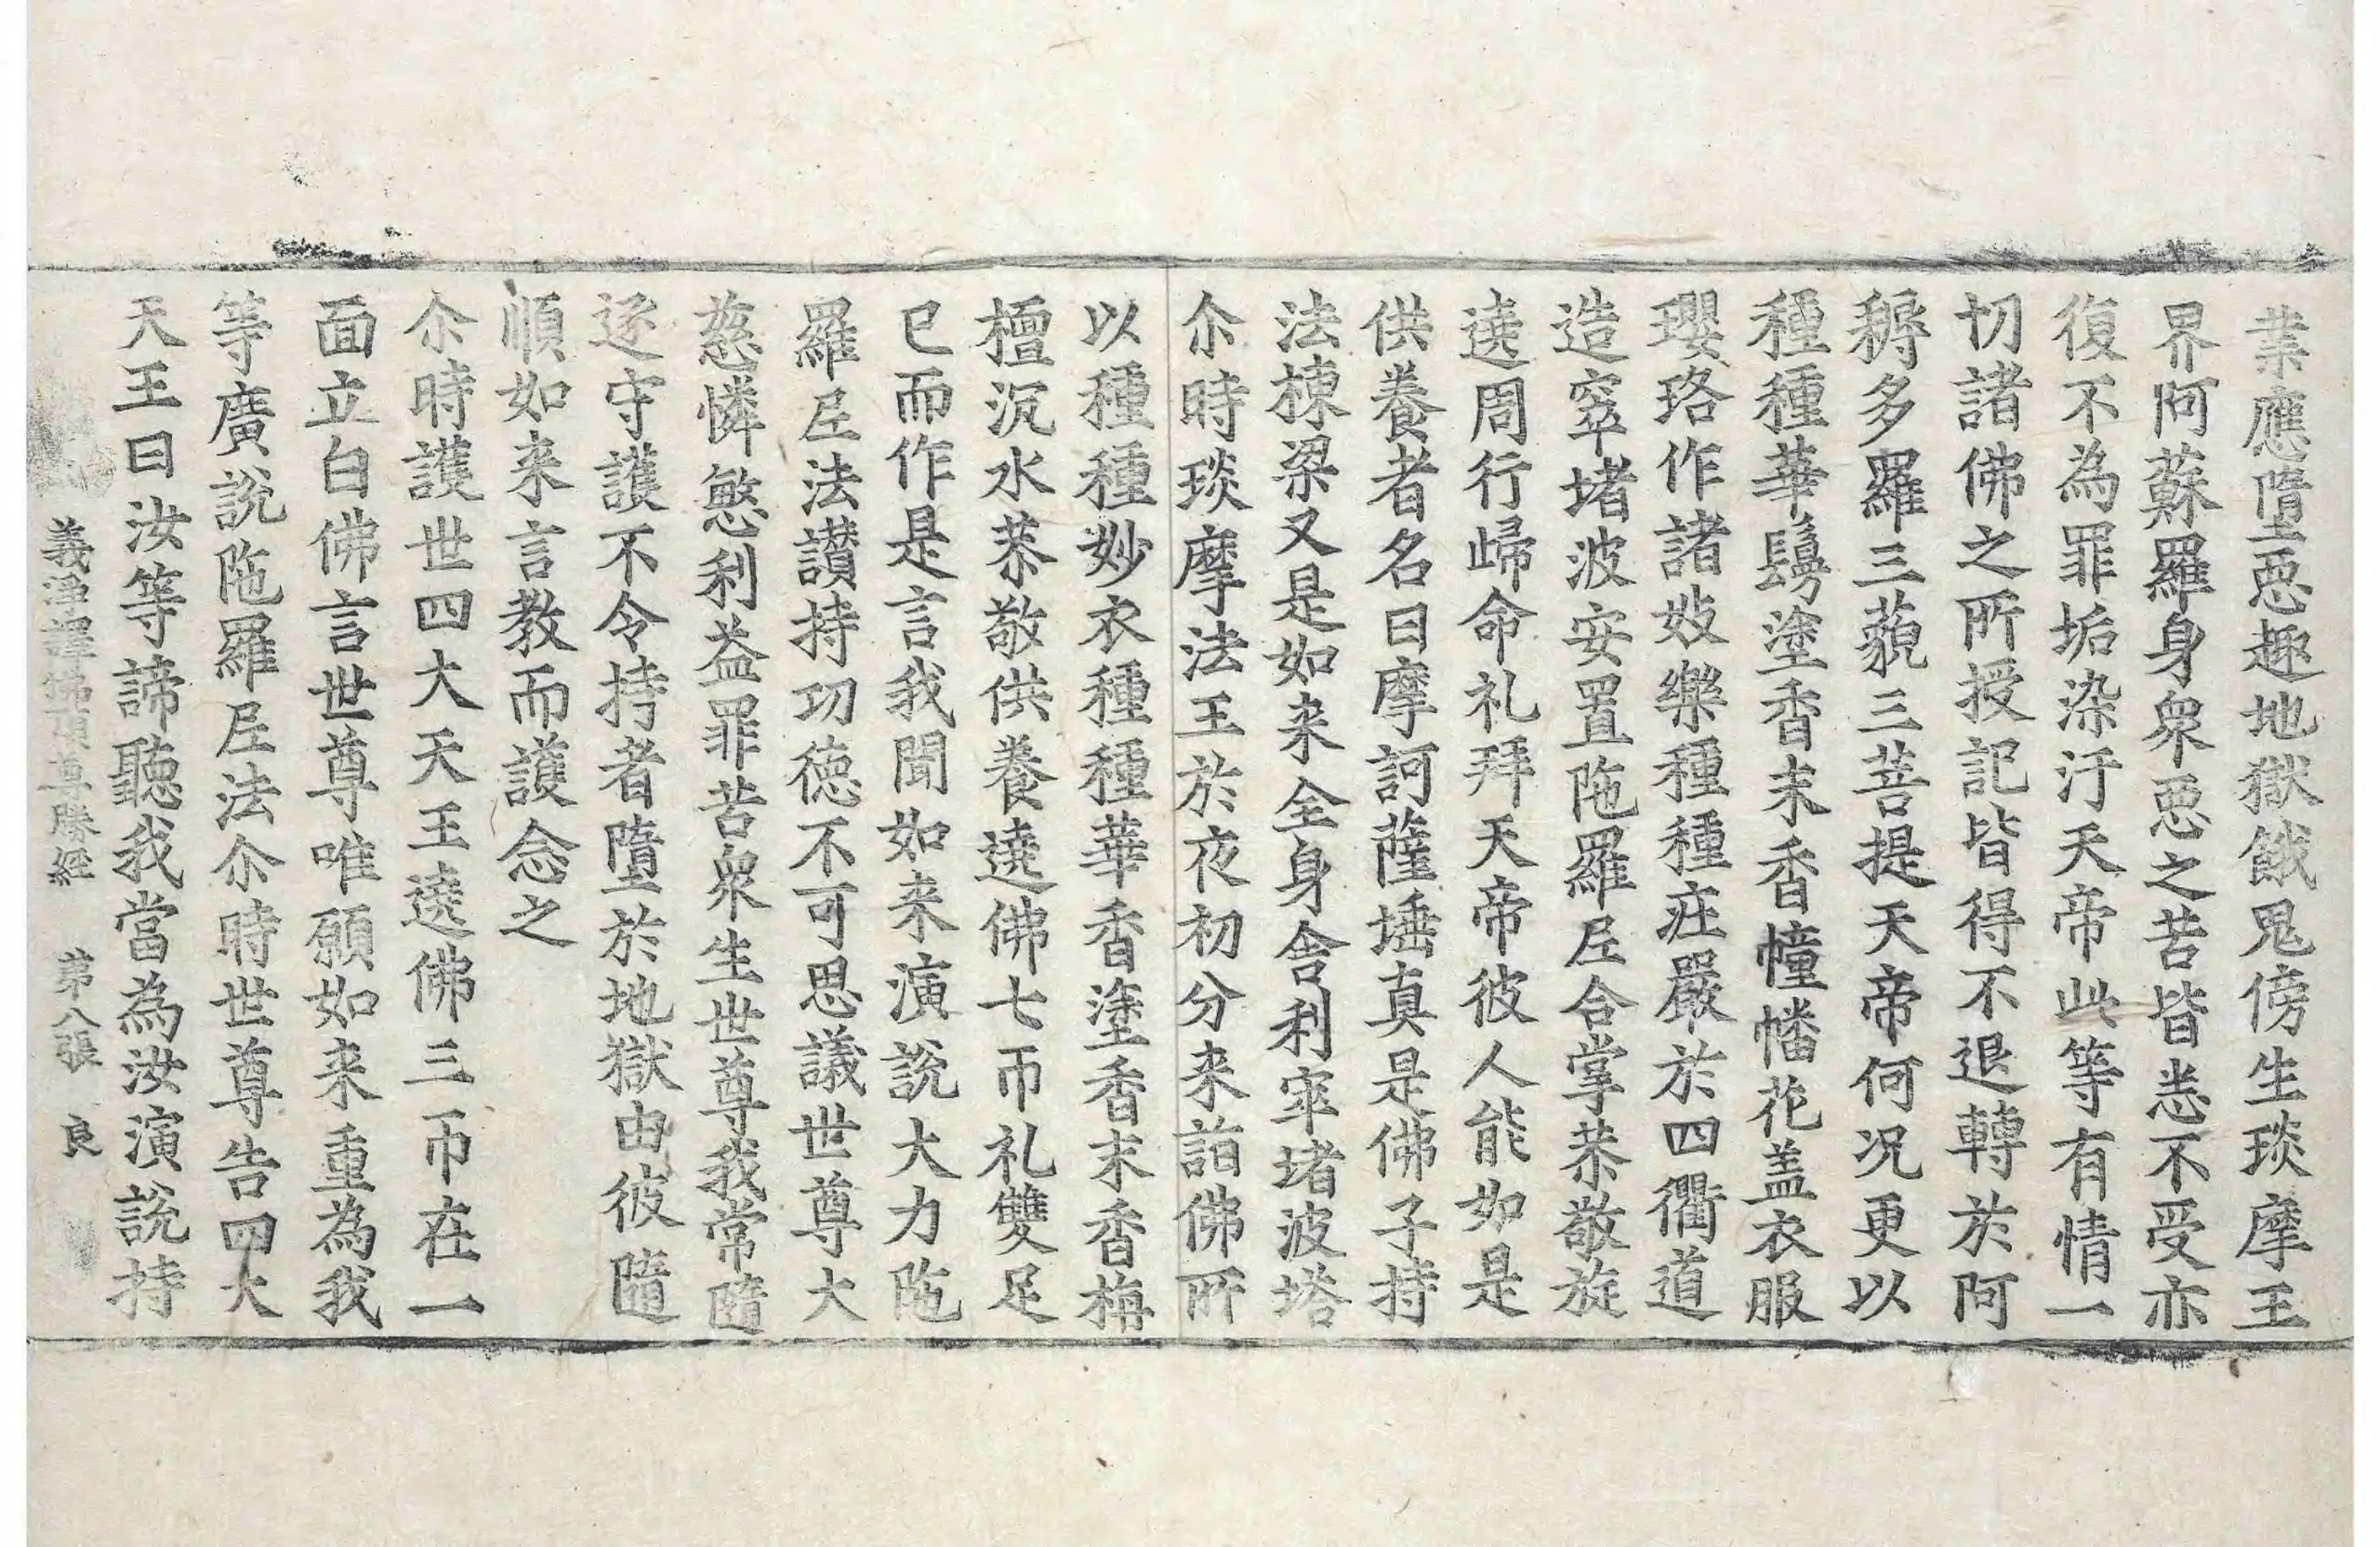 業應墮惡趣地獄餓鬼傍生琰摩王
界阿蘇羅身衆惡之苦皆悉不受亦
復不為罪垢染汙天帝此等有情一
切諸佛之所授記皆得不退轉於阿
耨多羅三藐三菩提天帝何况更以
種種華鬘塗香末香幢幡花盖衣服
瓔珞作諸妓樂種種莊嚴於四衢道
造窣堵波安置陁羅尼合掌恭敬旋
遶周行歸命礼拜天帝彼人能如是
供養者名曰摩訶薩埵真是佛子持
法棟梁又是如来全身舎利窣堵波塔
尒時琰摩法王於夜初分来詣佛所
以種種妙衣種種華香塗香末香栴
檀沉水恭敬供養遶佛七帀礼雙足
已而作是言我聞如来演說大力陁
羅尼法讃持功德不可思議世尊大
慈憐愍利益罪苦衆生世尊我常隨
逐守護不令持者墮於地獄由彼隨
順如来言教而護念之
尒時護世四大天王遶佛三帀在一
面立白佛言世尊唯願如来重為我
等廣說陁羅尼法尒時世尊告四大
天王曰汝等諦聽我當為汝演說持
義淨譯佛頂尊勝經 第八張 良